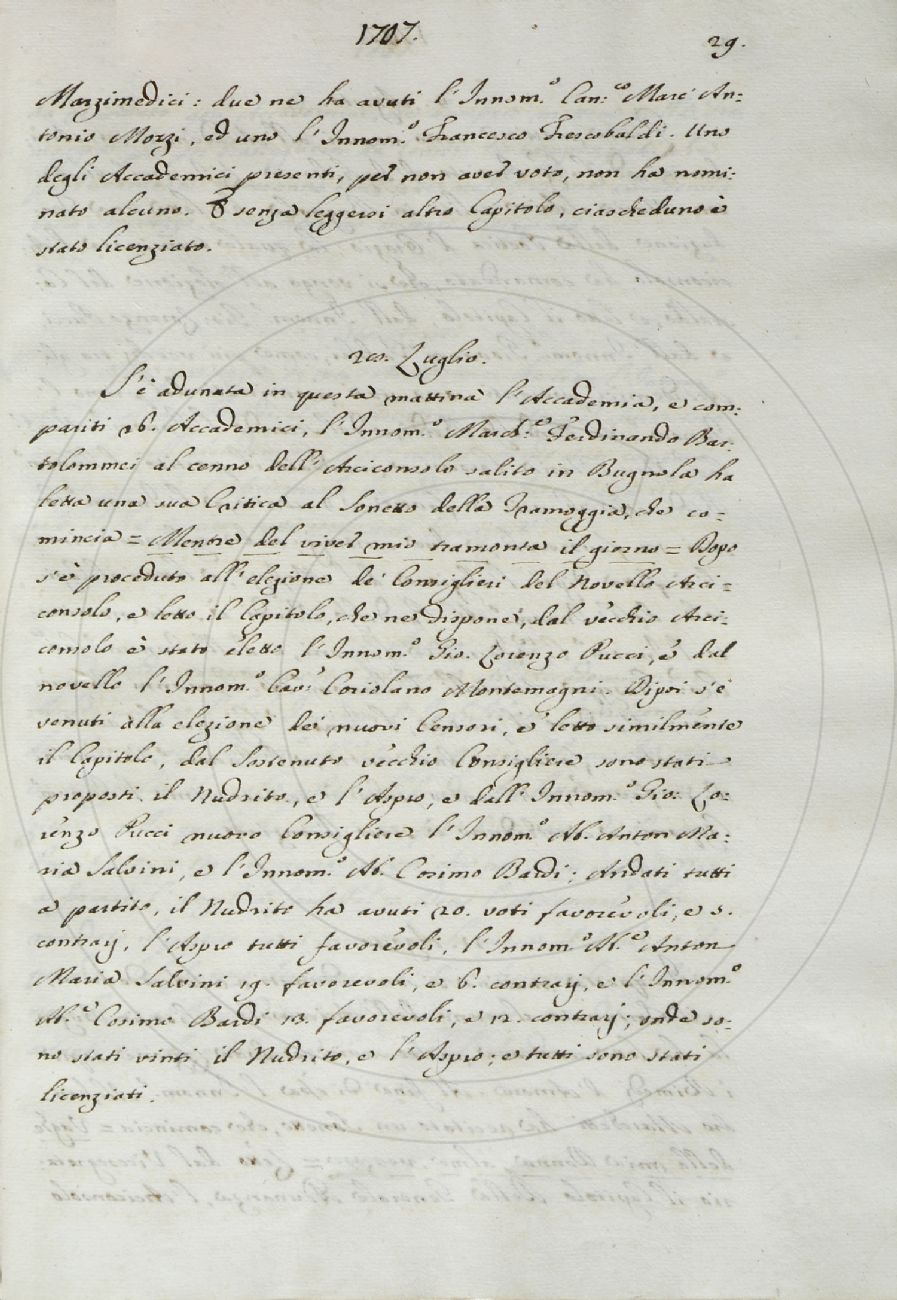 1707.
29.
Marzimedici: due ne ha avuti l'Innom.º Can.co Marc'An=
tonio Mozzi, ed uno l'Innom.º Francesco Frescobaldi. Uno
degli Accademici presenti, per non aver voto, non ha nomi=
nato alcuno. E senza leggersi altro Capitolo, ciascheduno è
stato licenziato.
20. Luglio.
S'è adunata in questa mattina l'Accademia, e com=
pariti 26. Accademici, l'Innom.º March.e Ferdinando Bar=
tolommei al cenno dell'Arciconsolo salito in Bugnola ha
letta una sua Critica al Sonetto della Tramoggia, che co=
mincia = Mentre del viver mio tramonta il giorno = Dopo
s'è proceduto all'elezione de' Consiglieri del Novello Arci=
consolo, e letto il Capitolo, che ne dispone, dal vecchio Arci=
consolo è stato eletto l'Innom.º Gio. Lorenzo Pucci, e dal
novello l'Innom.º Cav.r Coriolano Montemagni. Dipoi s'è
venuti alla elezione de' nuovi Censori, e letto similmente
il Capitolo, dal Sostenuto vecchio Consigliere sono stati
proposti il Nudrito, e l'Aspro, e dall'Innom.º Gio: Lo=
renzo Pucci nuovo Consigliere l'Innom.º Ab. Anton Ma=
ria Salvini, e l'Innom.º Ab. Cosimo Bardi; Andati tutti
a partito, il Nudrito ha avuti 20. voti favorevoli, e 5.
contrarj, l'Aspro tutti favorevoli, l'Innom.º Ab.e Anton
Maria Salvini 19. favorevoli, e 6. contrarj, e l'Innom.º
Ab.e Cosimo Bardi 13. favorevoli, e 12. contrarj; onde so=
no stati vinti il Nudrito, e l'Aspro; e tutti sono stati
licenziati.